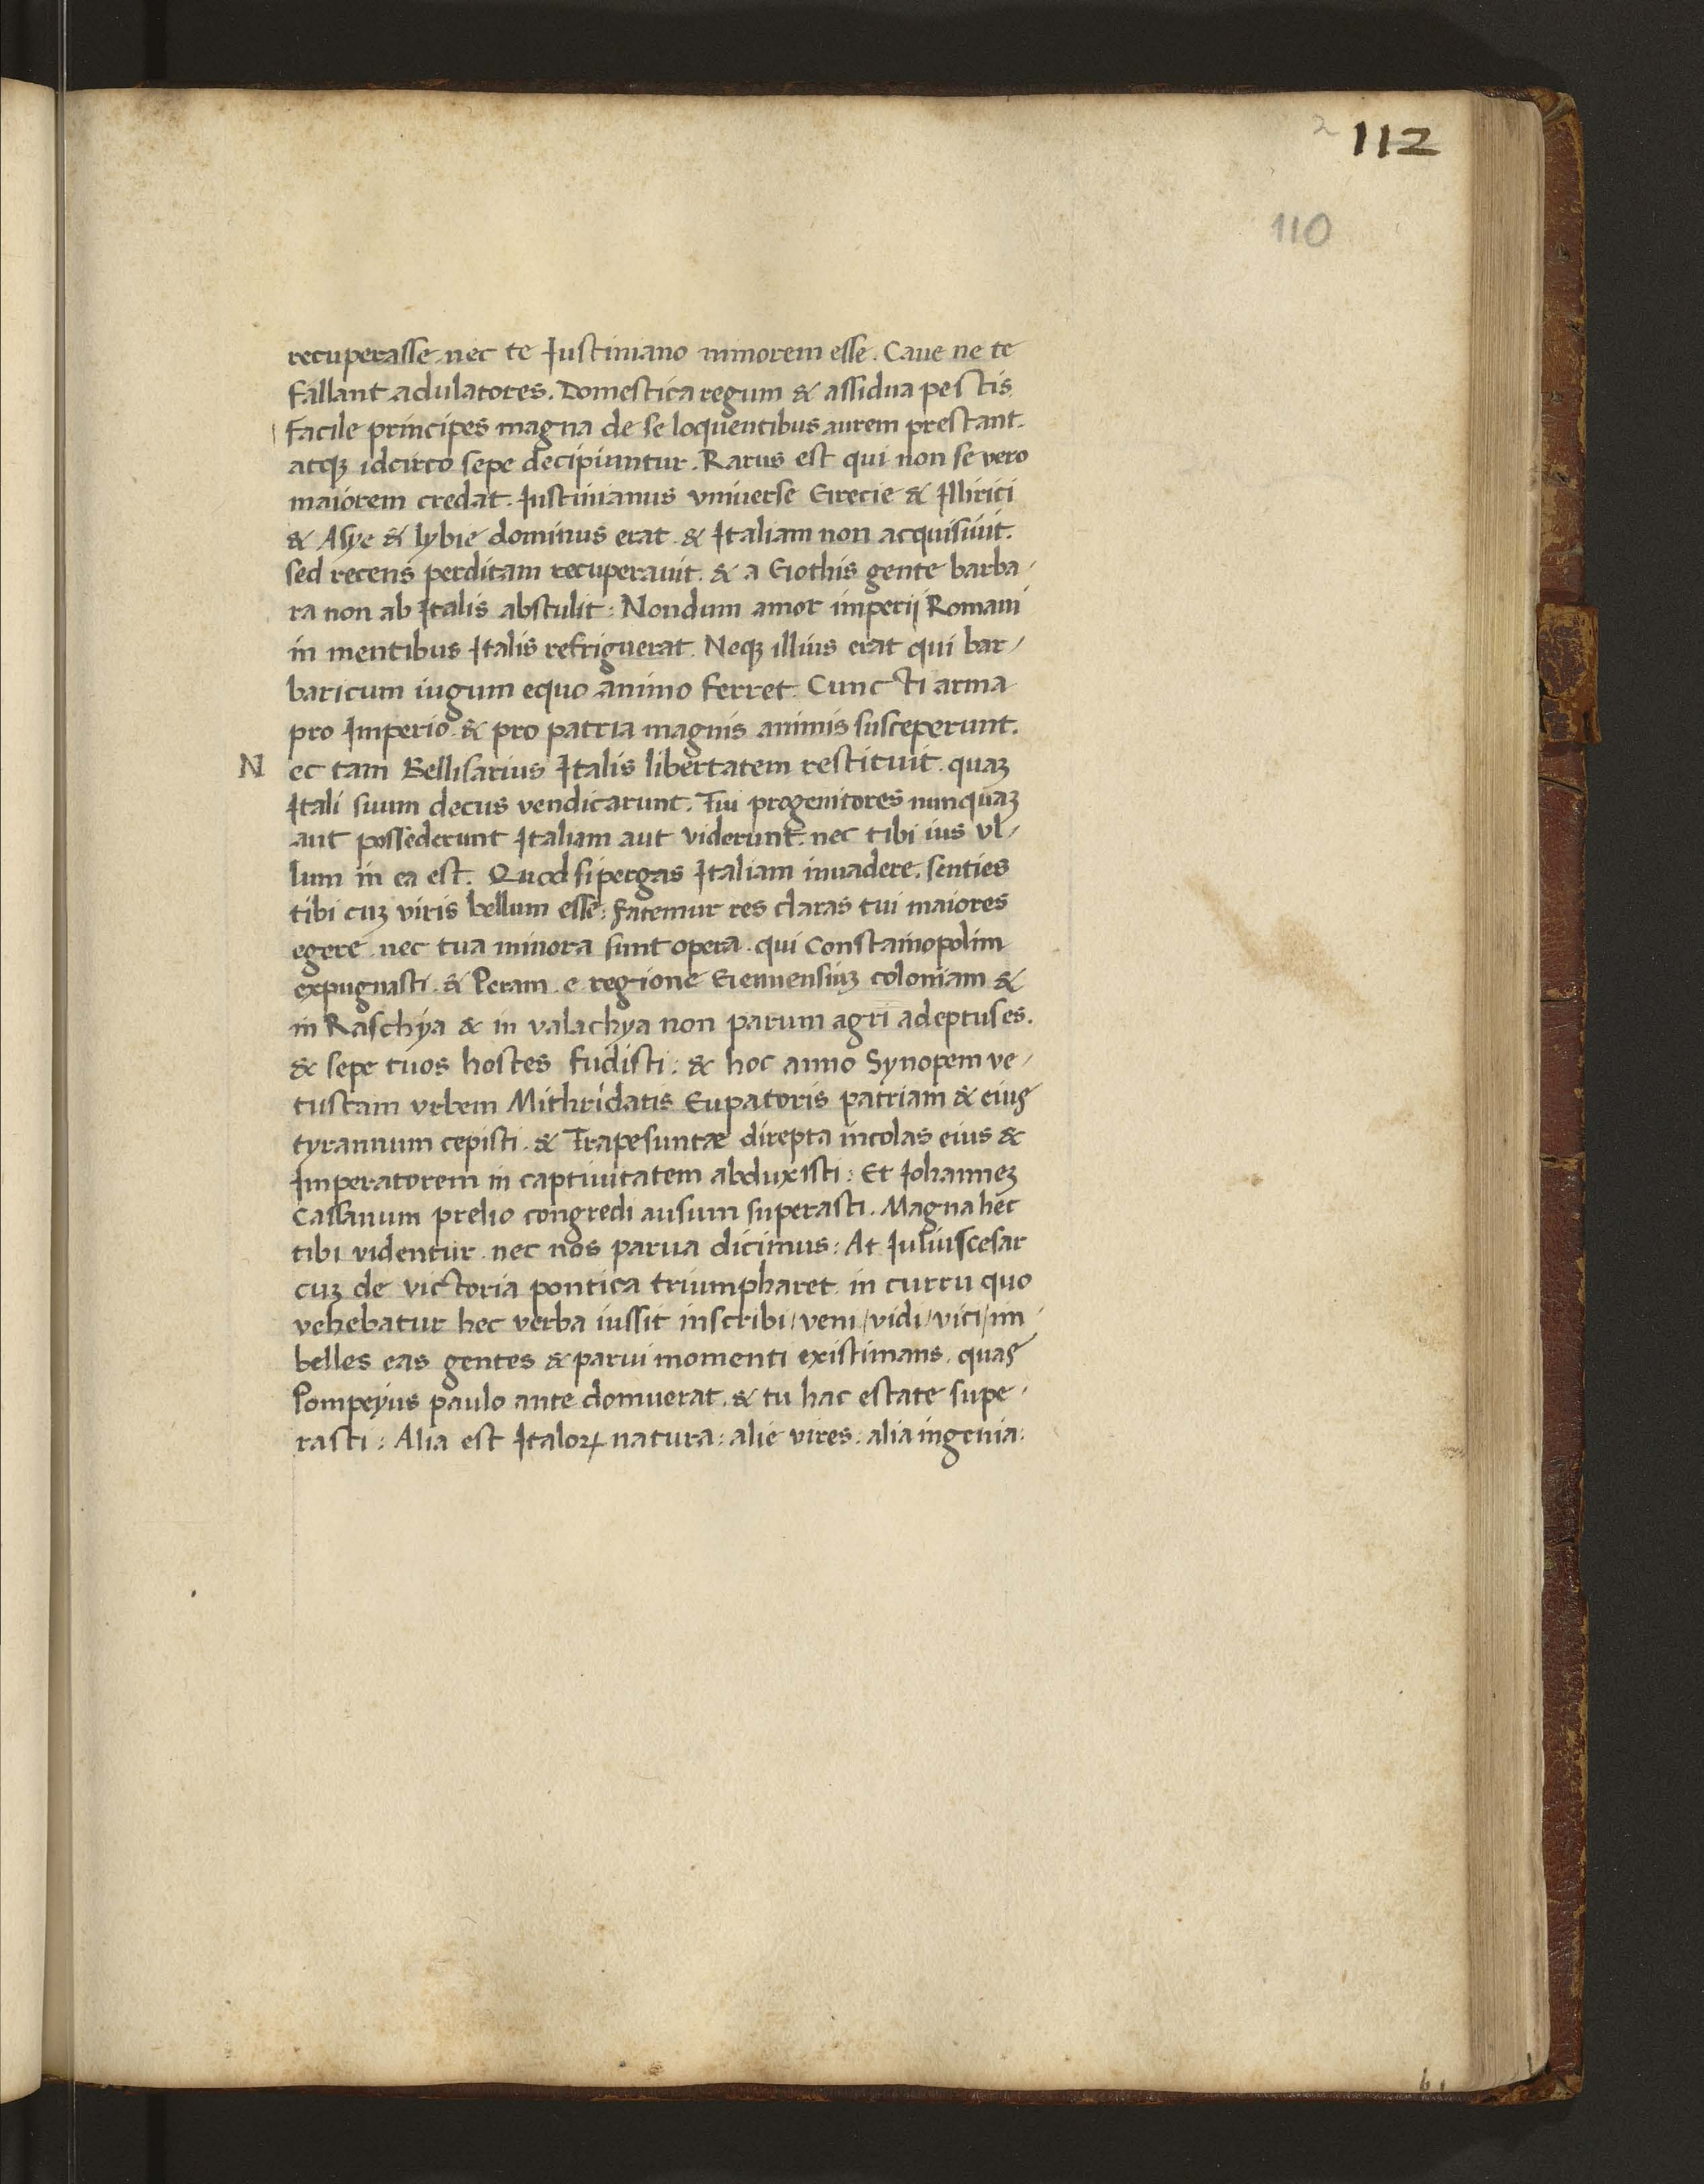 2 112
110
recuperasse. nec te Iustiniano minorem esse. Caue ne te
fallant adulatores. Domestica regum & assidua pestis
Facile principes magna de se loquentibus aurem prestant.
atqꝫ idcirco sepe decipiuntur. Rarus est qui non se vero
maiorem credat. Iustinianus vniuerse Grecie & Illirici
& Asye & lybie dominus erat. & Italiam non acquisiuit.
sed recens perditam recuperauit. & a Gothis gente barba/
ra non ab Italis abstulit: Nondum amor imperij Romani
in mentibus Italis refriguerat. Neqꝫ illius erat qui bar/
baricum iugum equo animo ferret. Cuncti arma
pro Imperio & pro patria magnis animis susceperunt.
N ec tam Bellisarius Italis libertatem restituit. quaꝫ
Itali suum decus vendicarunt. Tui progenitores nunquaꝫ
aut possederunt Italiam aut viderunt. nec tibi ius vl/
lum in ea est. Quod si pergas Italiam inuadere. senties
tibi cuꝫ viris bellum esse: fatemur res claras tui maiores
egere. nec tua minora sunt opera. qui Constatinopolim
expugnasti. & Peram. e regione Genuensiuꝫ coloniam &
in Raschya & in valachya non parum agri adeptus es.
& sepe tuos hostes fudisti: & hoc anno Synopem ve/
tustam vrbem Mithridatis Eupatoris patriam & eius
tyrannum cepisti. & Trapesuntæ direpta incolas eius &
Imperatorem in captiuitatem abduxisti: Et Iohanneꝫ
Cassanum prelio congredi ausum superasti. Magna hec
tibi videntur. nec nos parua dicimus: At Iulius cesar
cuꝫ de victoria pontica triumpharet. in curru quo
vehebatur hec verba iussit inscribi/ veni/ vidi/ vici/ im/
belles eas gentes & parui momenti existimans. quas
Pompeyus paulo ante domuerat. & tu hac estate supe/
rasti: Alia est Italoꝝ natura: alie vires: alia ingenia: